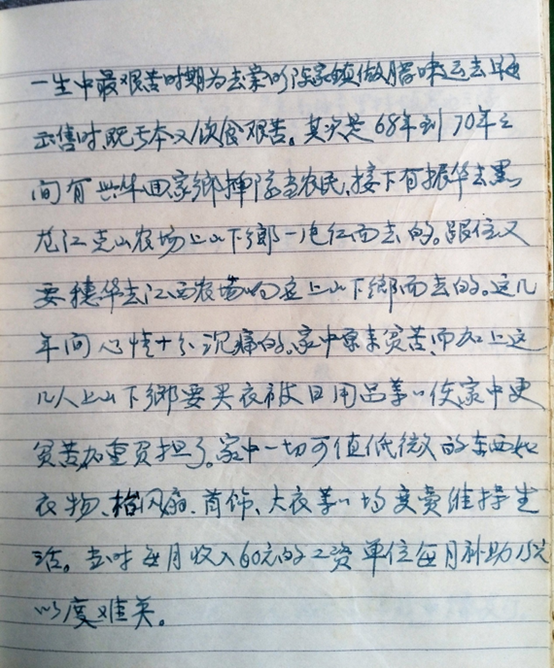 一生中最艰苦时期为去蒙的陈家镇做腊味运去
出售时,既亏本又饮食艰苦。其实是68年到70年之
间有兴华回家鄉插队当农民,接下有振华去黑
龙江克山农场上山下鄉一片红而去的。跟住又
要穗华去江西农场响应上山下鄉而去的。这几
年间心情十分沉痛的,家中原来贫苦,而加上这
几人上山下鄉要买衣被日用品等以使家中更
贫苦加重负担了。家中一切可值低微的东西如
衣物、枱闪扇、首饰、大衣等以均变卖维持生
活。当时每月收入60元的工资单位每月补助15元
以度难关。